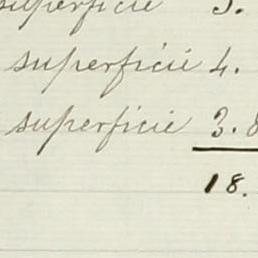 superficie 5.
superficie 4.
superficie 3.8
18.